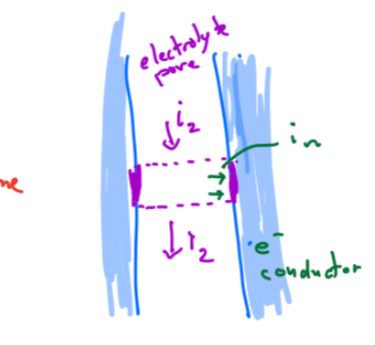 electrolyte
pore
i₂
iₙ
i₂
e⁻
conductor